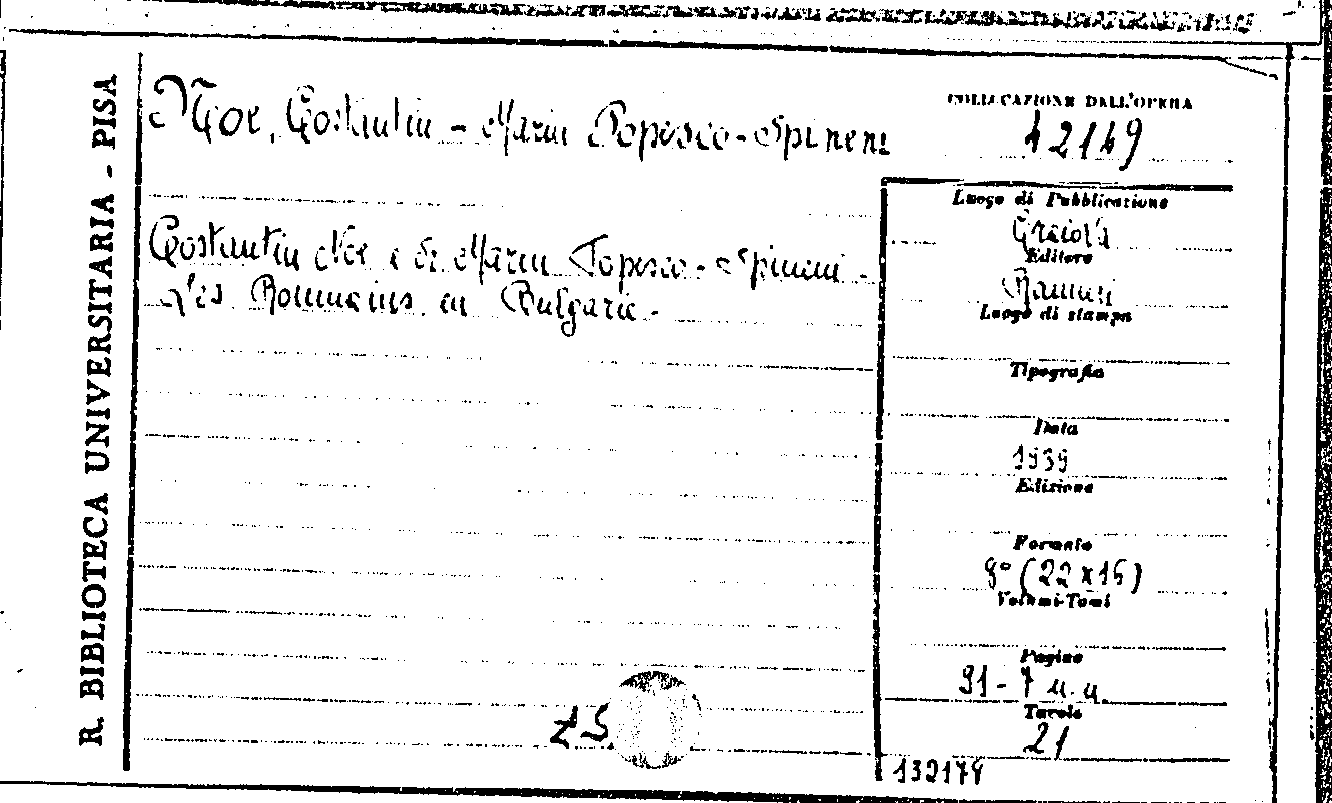 R. BIBLIOTECA UNIVERSITARIA - PISA
Noe, Costantin - Marin Popesco-Spineni
COLLOCAZIONE DALL'OPERA
42149
Costantin Noe e de Marin Popesco-Spineni -
Les Roumains en Bulgarie -
Luogo di Pubblicazione
Craiova
Editore
Ramuri
Luogo di stampa
Tipografia
Data
1939
Edizione
Formato
8° (22x16)
Volumi-Tomi
Pagine
91-7 n.n.
Tavole
21
132179